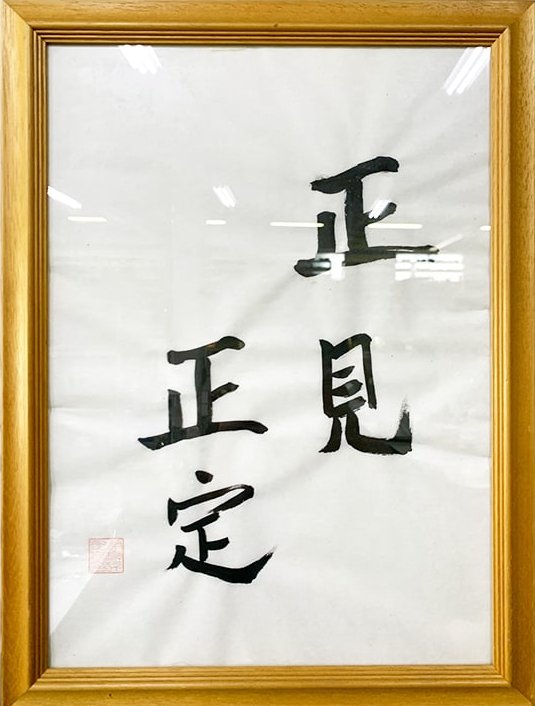 正見
正定